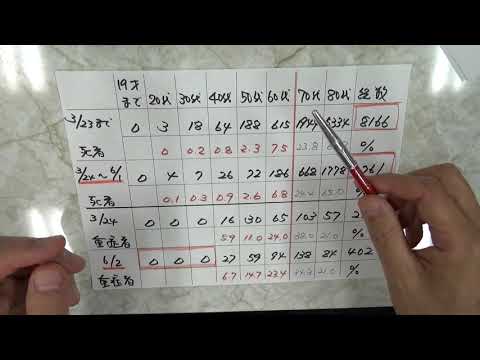 19才まで 20代 30代 40代 50代 60代 70代 80代 総数
3/23まで 0 3 18 64 188 615 1944 5334 8166
死者 0 0.2 0.8 2.3 7.5 23.8 %
3/24〜6/1 0 4 7 26 72 186 668 1778
死者 0.1 0.3 0.9 2.6 6.8 65.0 %
3/24 0 0 0 16 30 65 103 57
重症者 5.9 11.0 24.0 38.0 21.0 %
6/2 0 0 0 27 59 94 138 84 402
重症者 6.7 14.7 23.4 21.0 %